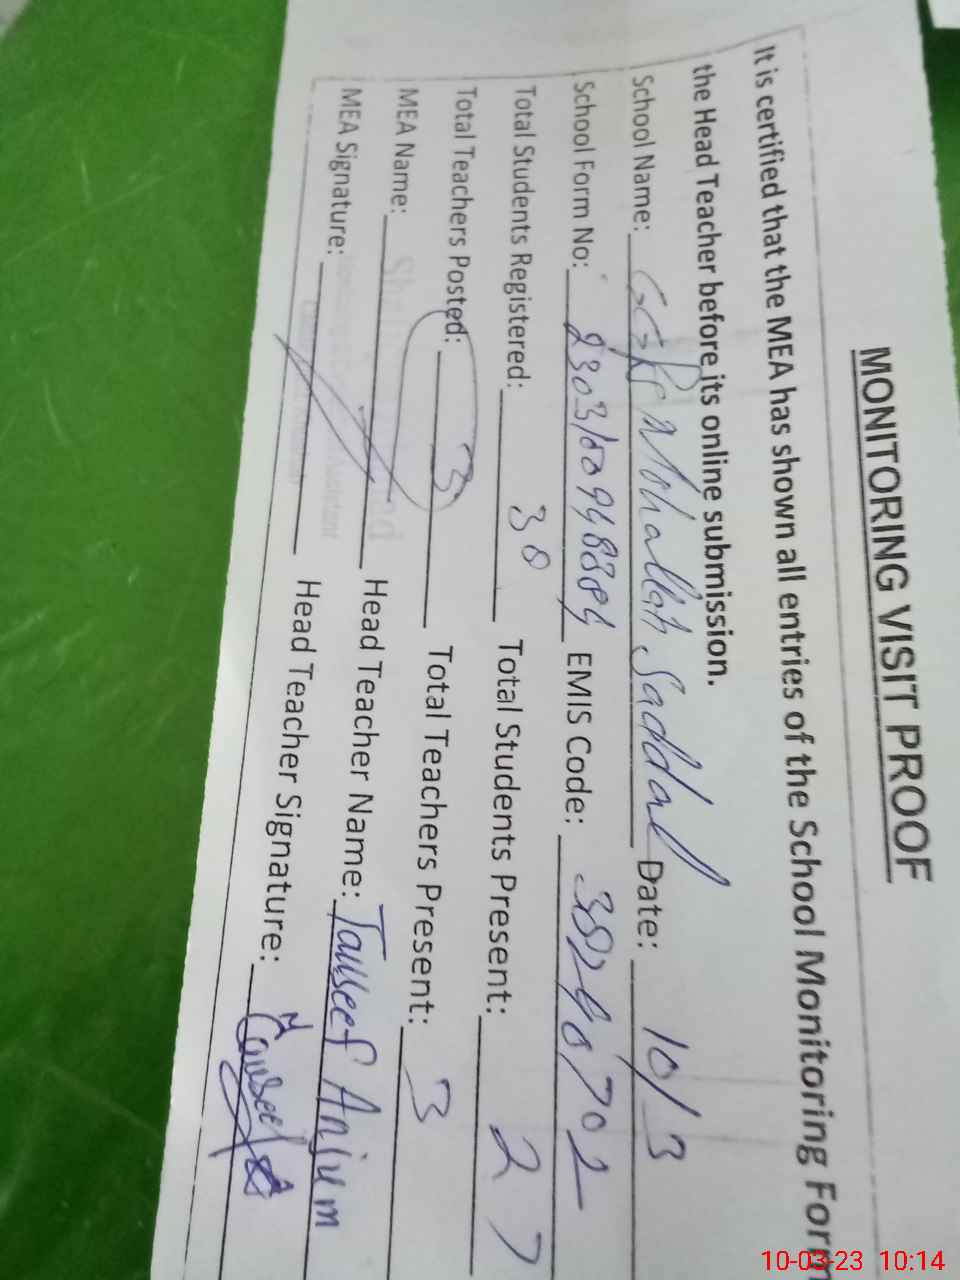 MONITORING VISIT PROOF
It is certified that the MEA has shown all entries of the School Monitoring Form
the Head Teacher before its online submission.
School Name: Mohallah Saddal Date: 10/3
School Form No: EMIS Code:
Total Students Registered: 38 Total Students Present: 27
Total Teachers Posted: 3 Total Teachers Present: 3
MEA Name: Head Teacher Name: Tauseef Anjum
MEA Signature: Head Teacher Signature: Tauseef
10-03-23 10:14